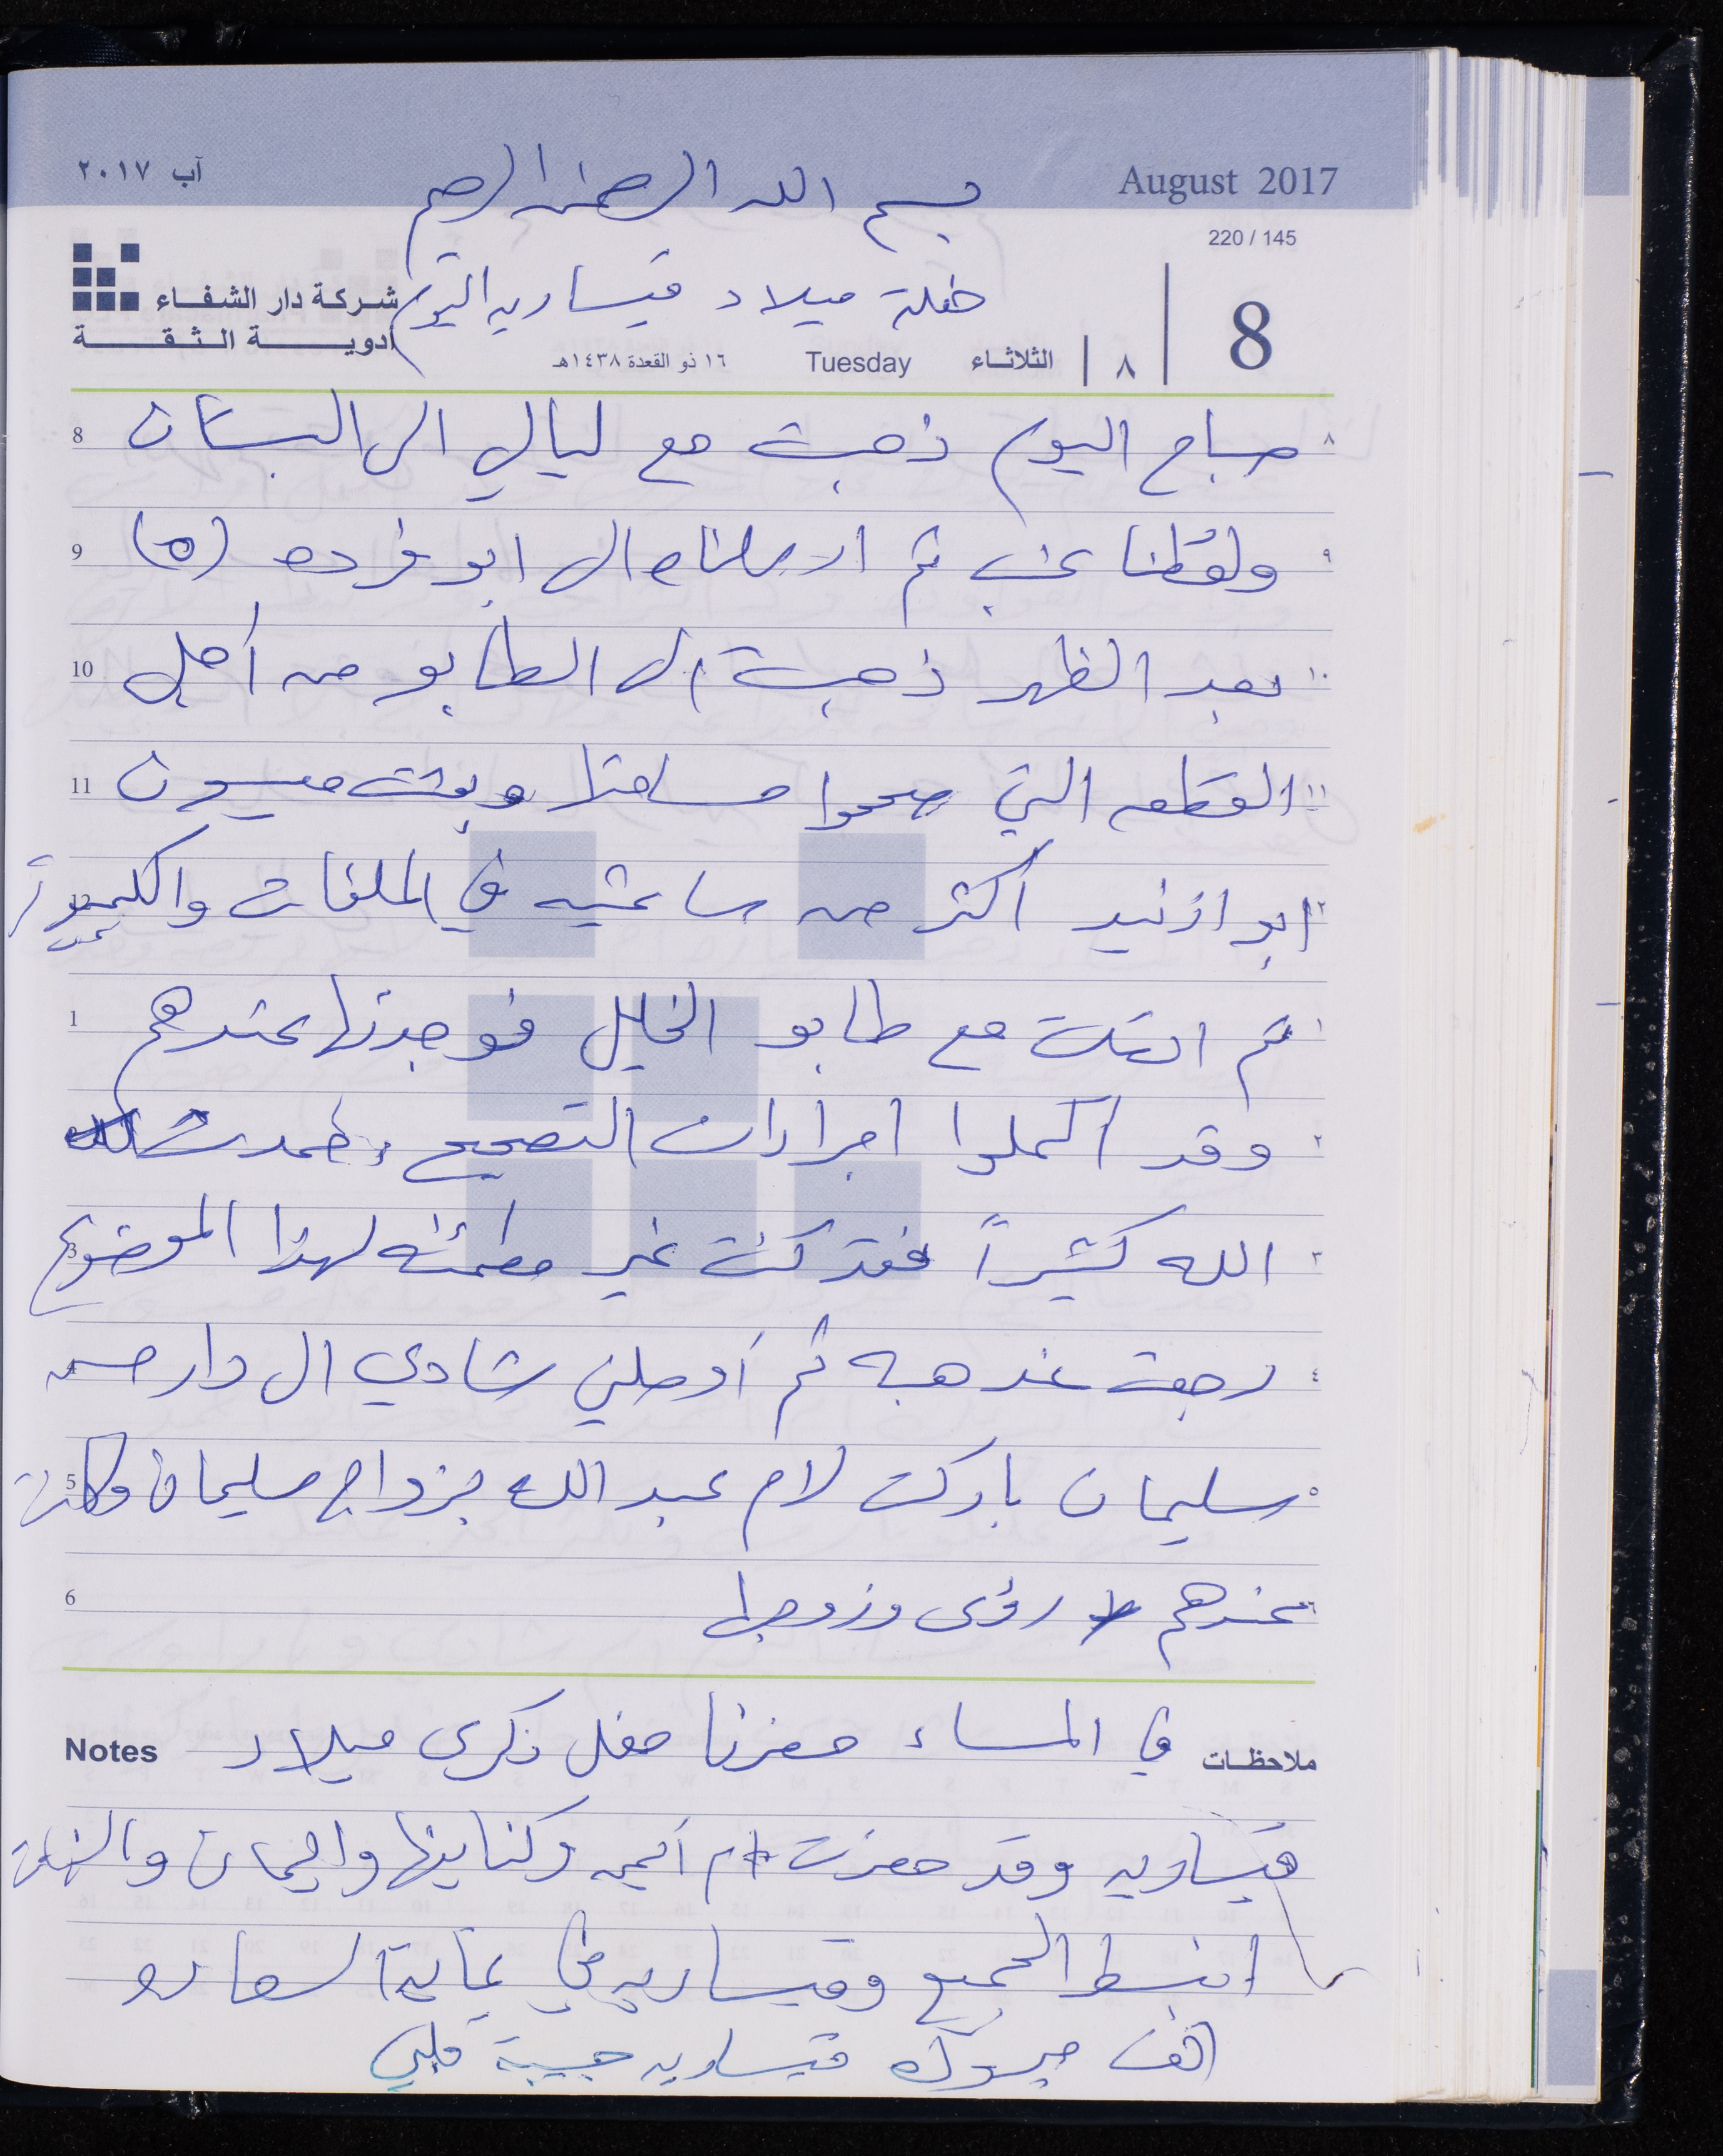 August 2017
آب ٢٠١٧
بسم الله الرحمن الرحيم
220 / 145
حفلة ميلاد قيساريه اليوم
شركة دار الشفاء
أدوية الثقة
8
٨
الثلاثاء
Tuesday
١٦ ذو القعدة ١٤٣٨هـ
٨ صباح اليوم ذهبت مع ليالي الى البستان 8
٩ ولقطنا عنب ثم ارسلناه الى ابو فرده (٥) 9
١٠ بعد الظهر ذهبت الى الطابو من أجل 10
١١ القطعه التي صححوا مساحتها وبقت ميسون 11
١٢ ابو ازنيد أكثر من ساعتيه في الملفات والكمبيوتر 12
١ ثم اتصلت مع طابو الخليل فوجدتها عندهم 1
٢ وقد اكملوا اجراءات التصحيح وحمدت
٣ الله كثيراً فقد كنت غير مطمئنه لهذا الموضوع 3
٤ رجعت عند هبه ثم أوصلني شادي الى دار حسن
٥ سليمان باركت لام عبد الله بزواج سليمان وكانت 5
٦ عندهم رؤى وزوجها 6
ملاحظات في المساء حضرنا حفل ذكرى ميلاد Notes
قيساريه وقد حضرت ام أيمن وكناينها وايمان
انبسط الجميع وقيساريه في غاية السعاده
الف مبروك قيساريه حبيبة قلبي